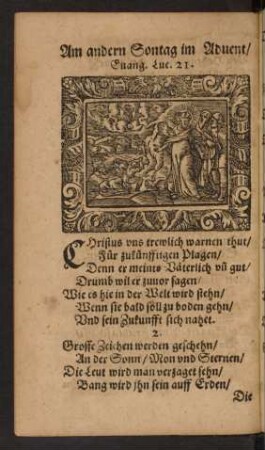 Am andern Sontag im Advent/
Euang. Luc. 21.
CHristus vns trewlich warnen thut/
Für zukünfftigen Plagen/
Denn er meints Väterlich vñ gut/
Drumb wil er zuuor sagen/
Wie es hie in der Welt wird stehn/
Wenn sie bald soll zu boden gehn/
Vnd sein Zukunfft sich nahet.
2.
Grosse Zeichen werden geschehn/
An der Sonn/ Mon vnd Sternen/
Die Leut wird man verzaget sehn/
Bang wird jhn sein auff Erden/
Die